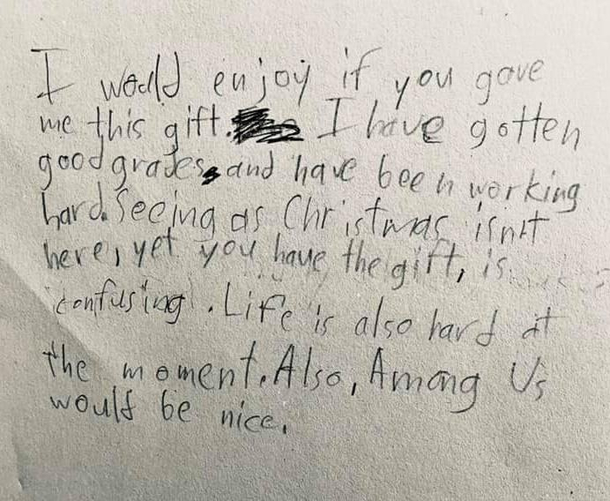 I would enjoy if you gave
me this gift. I have gotten
good grades, and have been working
hard. Seeing as Christmas isn't
here, yet you have the gift, is
confusing. Life is also hard at
the moment. Also, Among Us
would be nice.